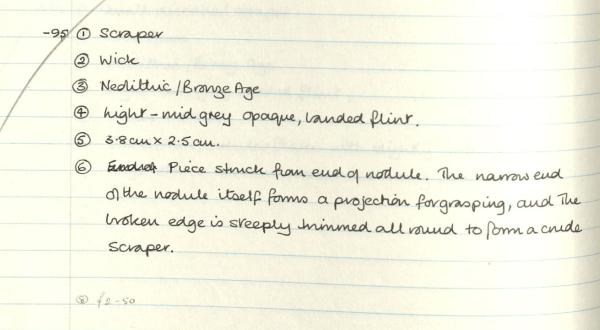 -95 ① Scraper
② Wick
③ Neolithic/Bronze Age
④ Light-mid grey opaque, banded flint.
⑤ 3.8cm x 2.5cm.
⑥ Piece struck from end of nodule. The narrow end
of the nodule itself forms a projection for grasping, and the
broken edge is steeply trimmed all round to form a crude
scraper.
⑧ £2-50